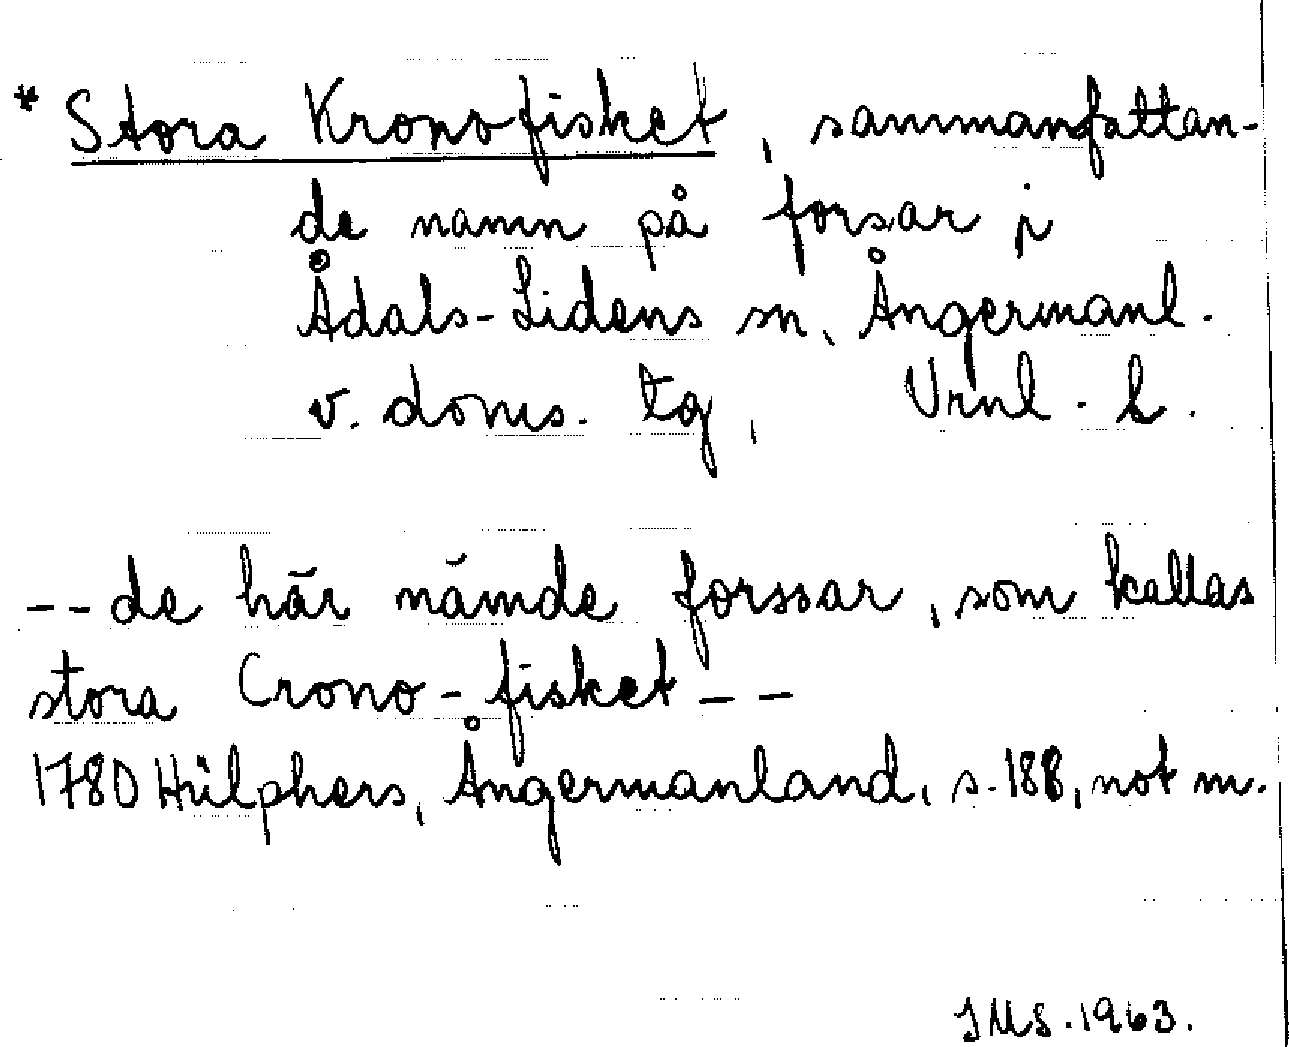 * Stora Kronofisket, sammanfattan-
de namn på forsar i
Ådals-Lidens sn, Ångermanl.
v. doms. tg, Vrnl. l.
--de här nämde forssar, som kallas
stora Crono-fisket--
1780 Hülphers, Ångermanland, s. 188, not m.
JMS. 1963.